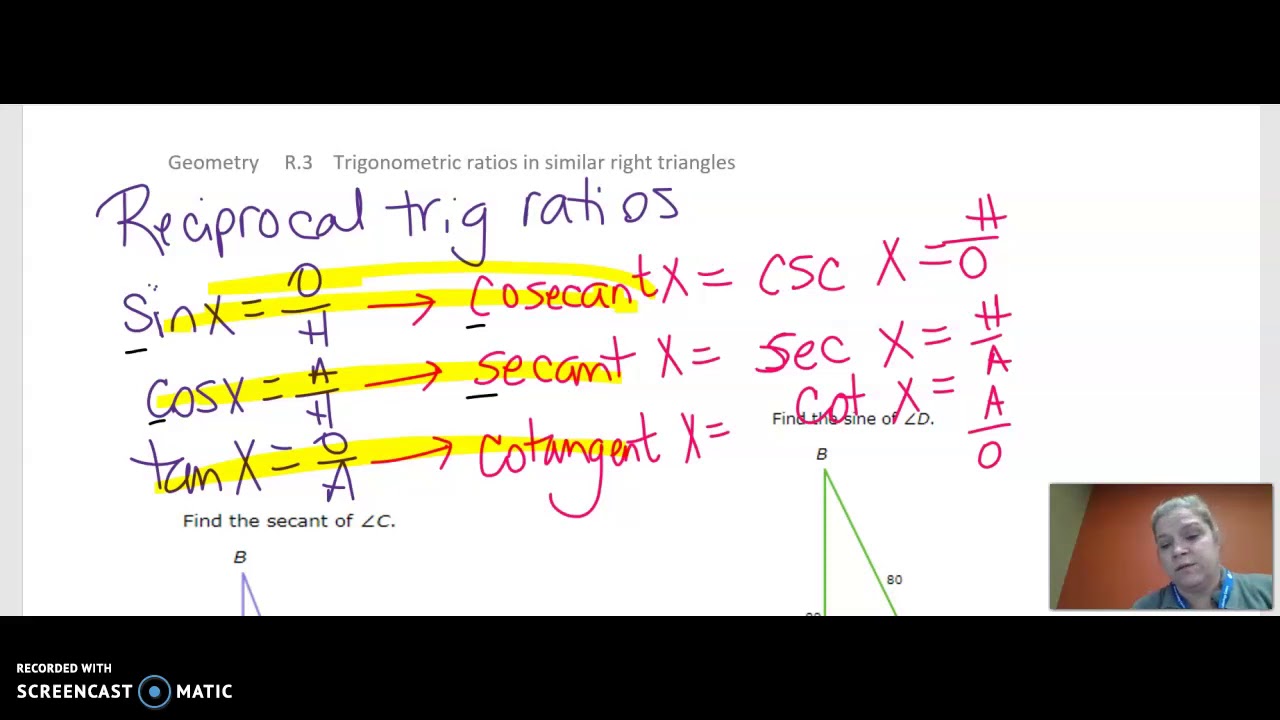 Geometry R.3 Trigonometric ratios in similar right triangles
Reciprocal trig ratios
sin x = O/H → cosecant x = csc x = H/O
cos x = A/H → secant x = sec x = H/A
tan x = O/A → cotangent x = cot x = A/O
Find the sine of ∠D.
B
80
Find the secant of ∠C.
B
RECORDED WITH
SCREENCAST MATIC